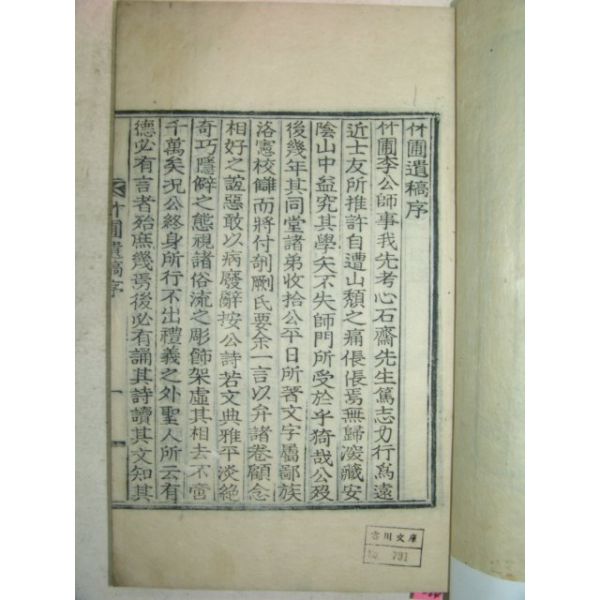 竹圃遺稿序
竹圃李公師事我先考心石齋先生篤志力行爲遠
近士友所推許自遭山頹之痛倀倀焉無歸深藏安
陰山中益究其學矢不失師門所受於乎猗哉公歿
後幾年其同堂諸弟收拾公平日所著文字屬鄙族
洛憲校讎而將付剞劂氏要余一言以弁諸卷顧念
相好之誼惡敢以病廢辭按公詩若文典雅平淡絶
奇巧隱僻之態視諸俗流之彫飾架虛其相去不啻
千萬矣况公終身所行不出禮義之外聖人所云有
德必有言者殆庶幾焉後必有誦其詩讀其文知其
竹圃遺稿序
一
古川文庫
No. 791